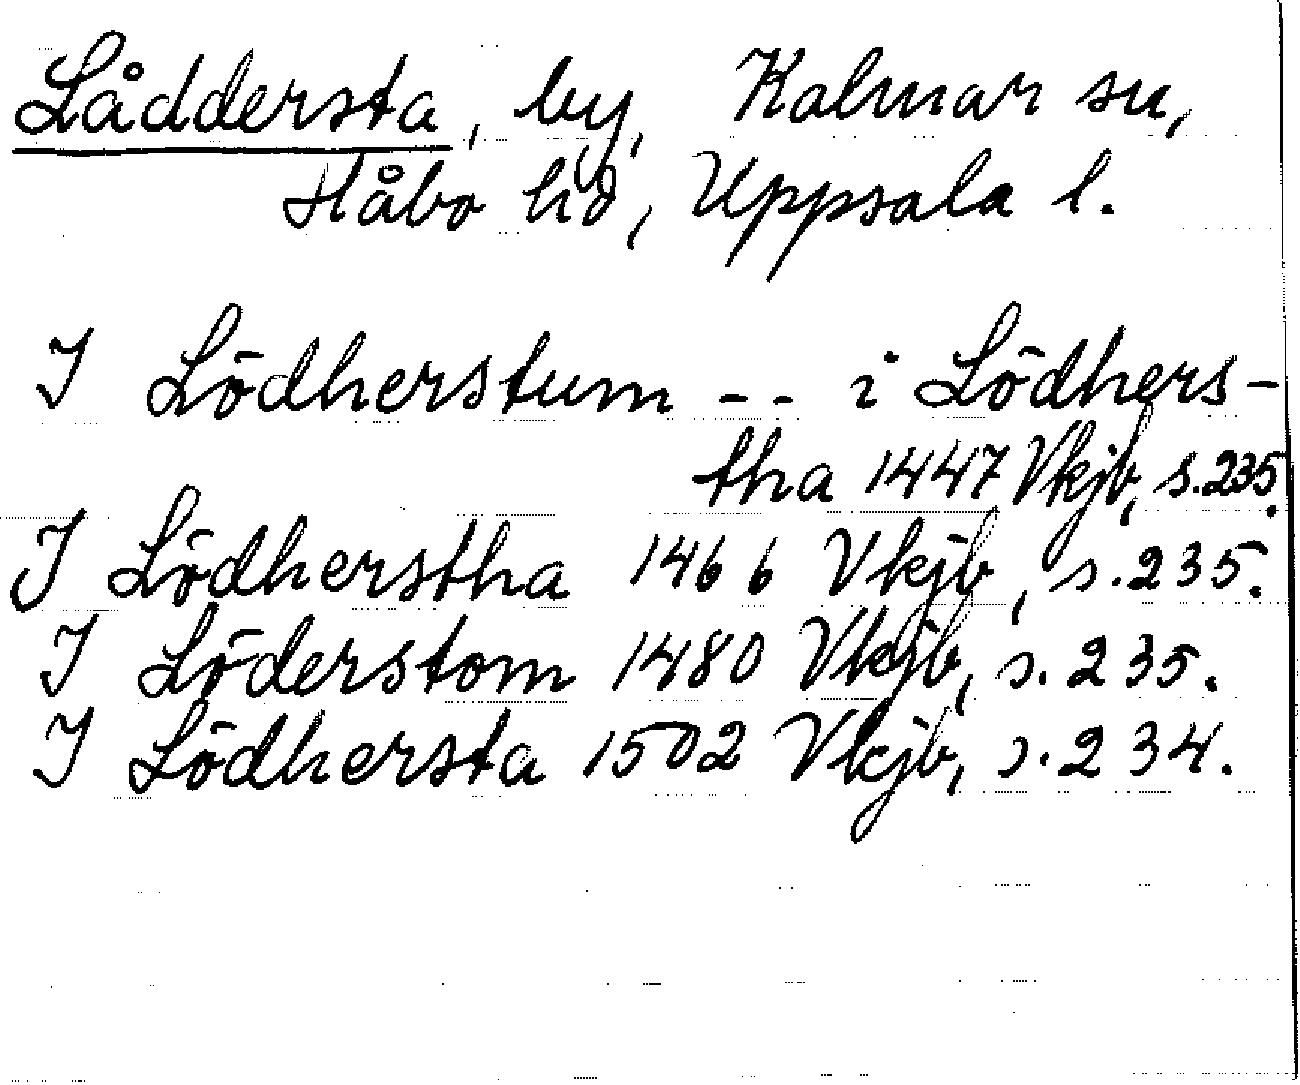 Låddersta, by, Kalmar sn,
Håbo hd, Uppsala l.
I Lödherstum -- i Lödhers-
tha 1447 Vkjb, s.235.
I Lödherstha 1466 Vkjb, s.235.
I Löderstom 1480 Vkjb, s.235.
I Lödhersta 1502 Vkjb, s.234.